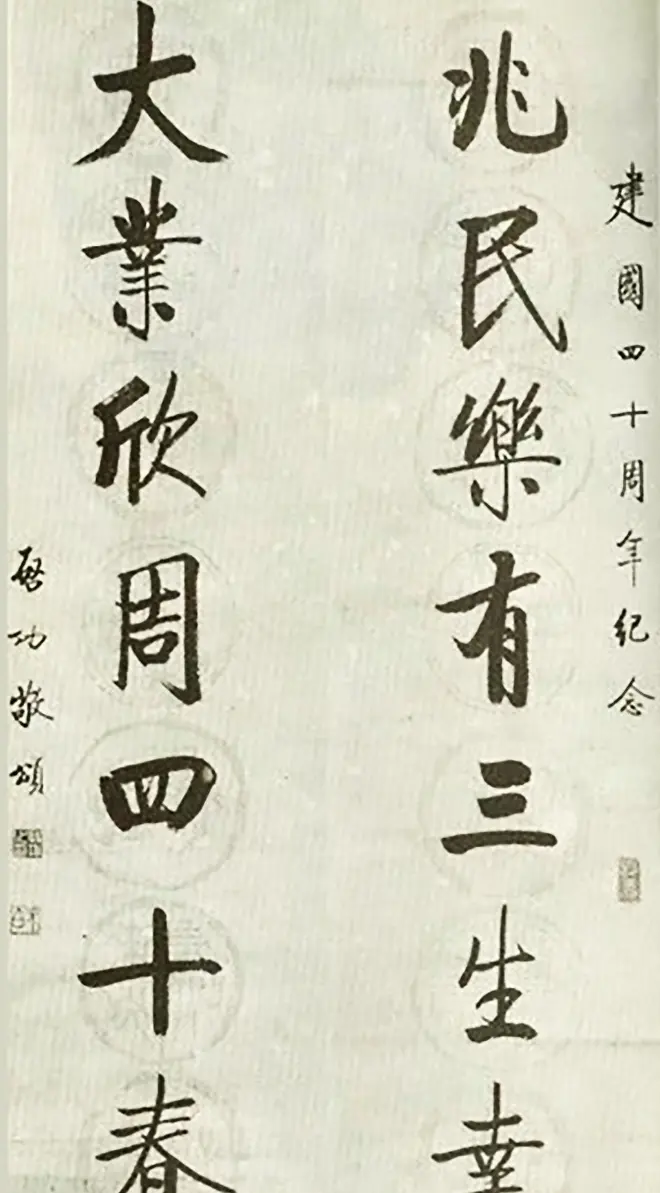 建國四十周年紀念
兆民樂有三生幸
大業欣周四十春
啓功敬頌